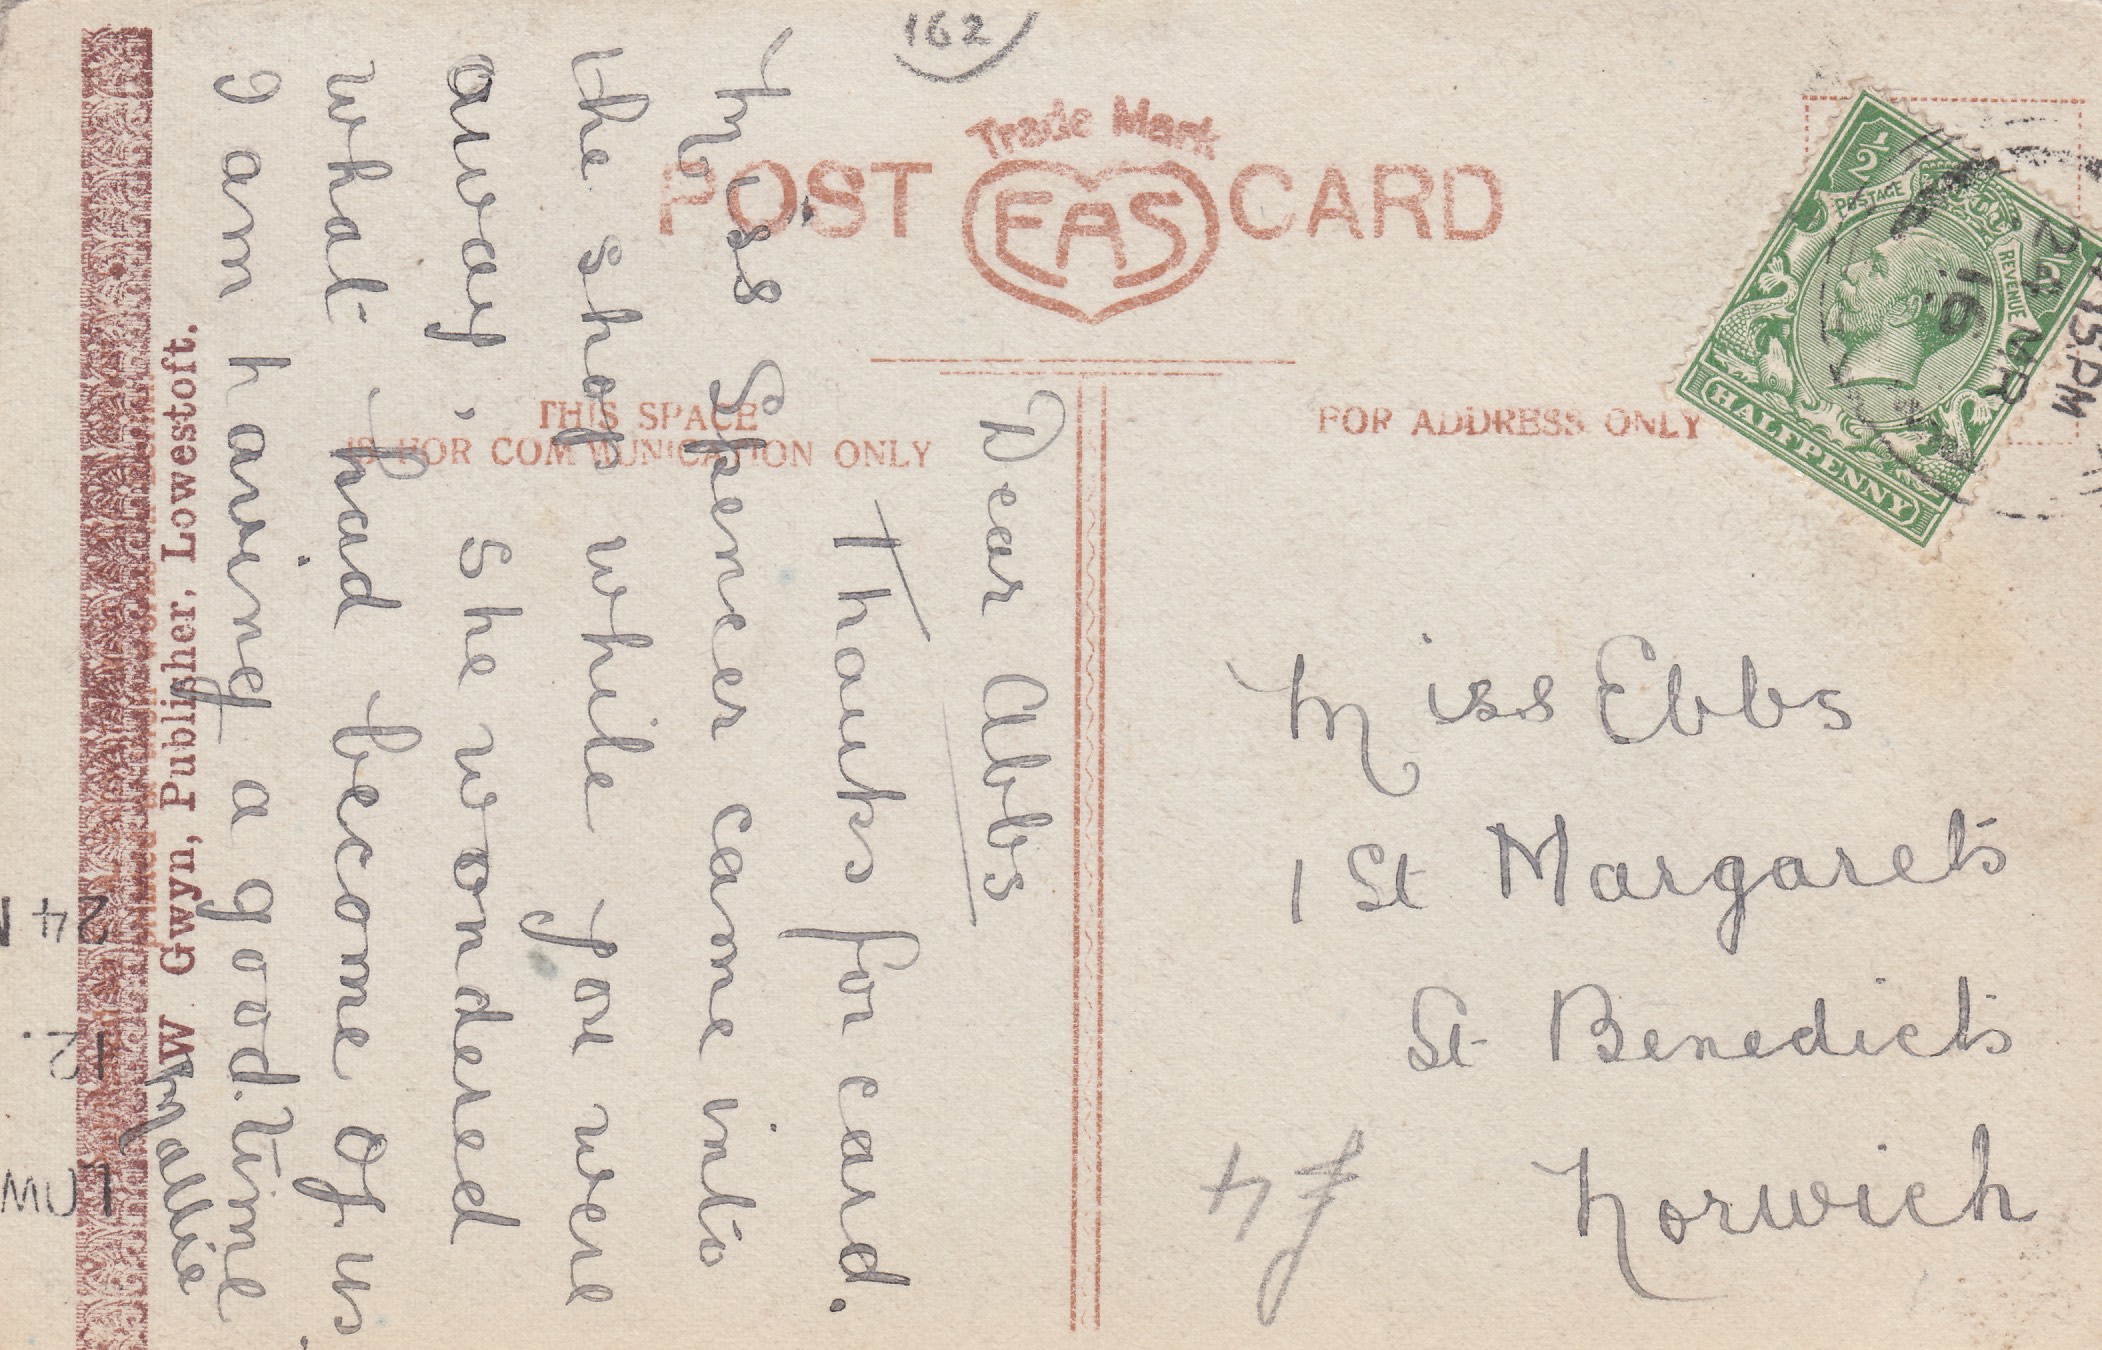 162
Trade Mark
POST EAS CARD
THIS SPACE
IS FOR COMMUNICATION ONLY
FOR ADDRESS ONLY
1/2
POSTAGE
REVENUE
HALFPENNY
15 PM
24 MR
16
Dear Abbs
Thanks for card.
Miss Spencer came into
the shop while you were
away, she wondered
what had become of us
I am having a good time
Mallie
W Gwyn, Publisher, Lowestoft.
Miss Ebbs
1 St Margarets
St Benedicts
Norwich
£4
24
12.
LOW